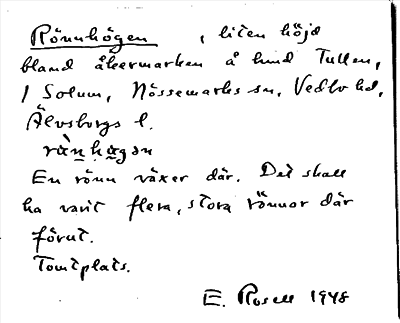 Rönnhögen, liten höjd
bland åkermarken å hmd Tullen,
/ Solum, Nössemarks sn, Vedbo hd,
Älvsborgs l.
rànhøgən
En rönn växer där. Det skall
ha varit flera, stora rönnar där
förut.
Tomtplats.
E. Rosell 1948